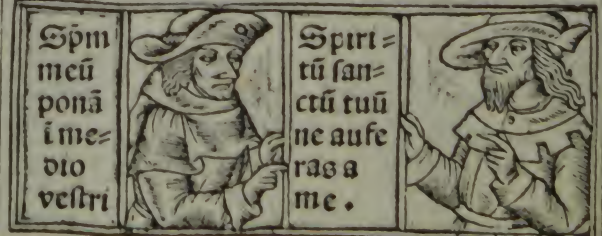 Sp̄m
meū
ponā
ī me=
dio
vestri
Spiri=
tū san=
ctū tuū
ne aufe
ras a
me.